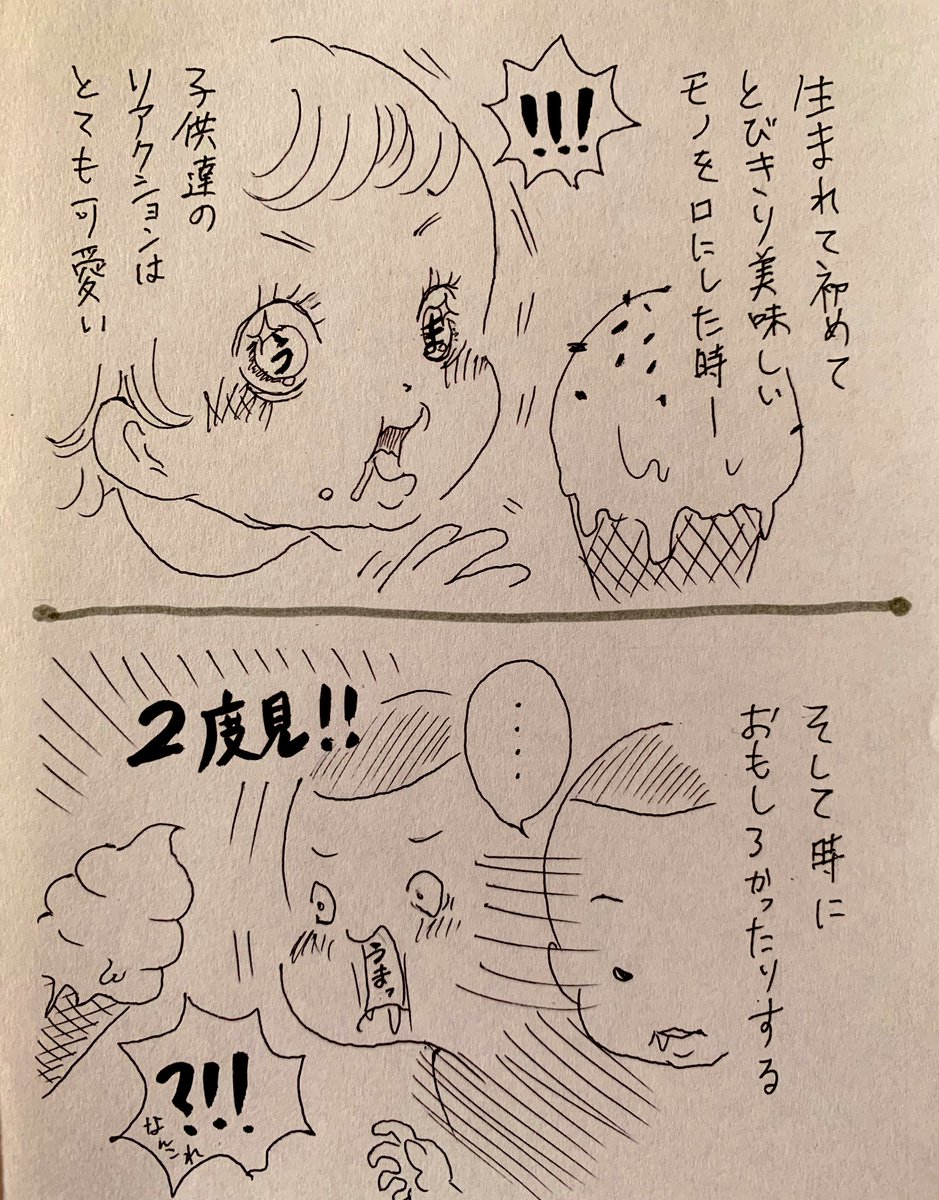 生まれて初めて
とびきり美味しい
モノを口にした時ー
!!!
う
ま
子供達の
リアクションは
とても可愛い
そして時に
おもしろかったりする
····
2度見!!
うまっ
?!!
なんこれ